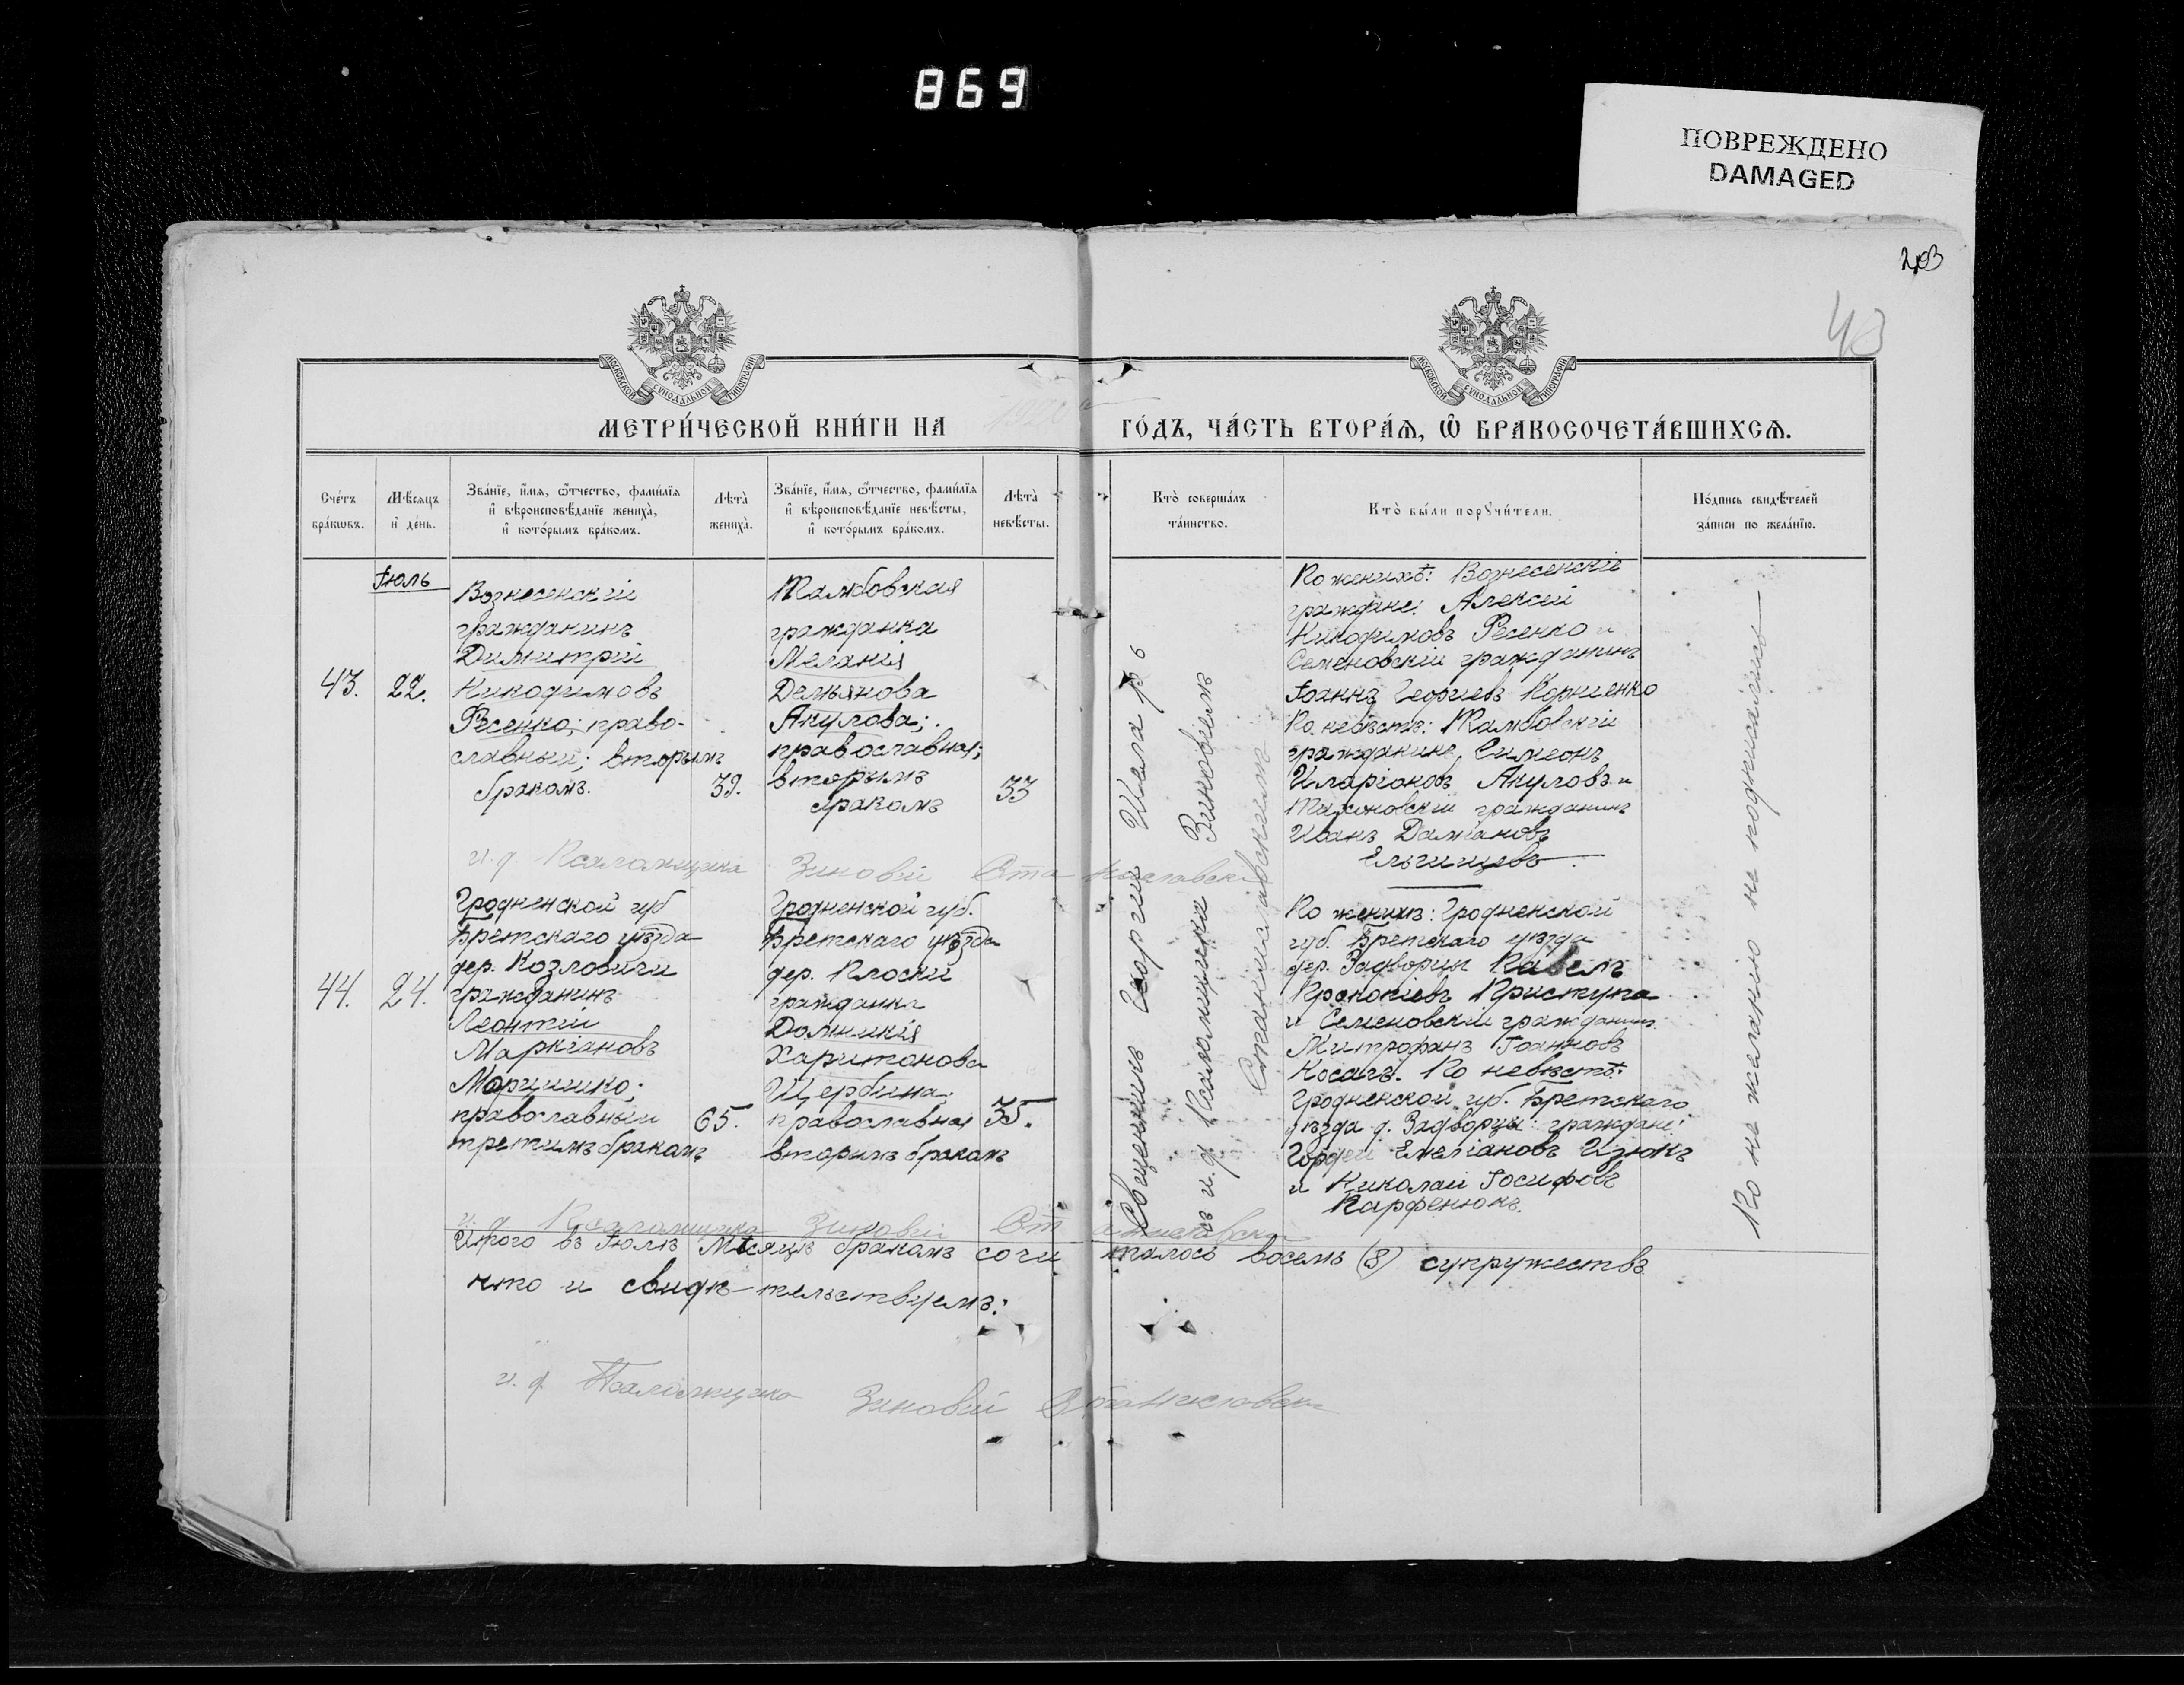 869
ПОВРЕЖДЕНО
DAMAGED
203
43
МОСКОВСКОЙ СУНОДАЛЬНОЙ ТИПОГРАФІИ
МОСКОВСКОЙ СУНОДАЛЬНОЙ ТИПОГРАФІИ
МЕТРИ́ЧЕСКОЙ КНИ́ГИ НА 1920 ГО́ДЪ, ЧА́СТЬ ВТОРА́Ѧ, Ѽ БРАКОСОЧЕТА́ВШИХСѦ.
Сче́тъ
бра́кѡвъ.
Мѣ́сяцъ
и҆ де́нь.
Зва́нїе, и҆́мѧ, ѻ҆́тчество, фамı́лїѧ
и҆ вѣроисповѣ́данїе женихà,
и҆ кото́рымъ бра́комъ.
Лѣта̀
жениха̀.
Зва́нїе, и҆́мѧ, ѻ҆́тчество, фамı́лїѧ
и҆ вѣроисповѣ́данїе невѣ́сты,
и҆ кото́рымъ бра́комъ.
Лѣта̀
невѣ́сты.
Кто̀ соверша́лъ
та́инство.
Кто̀ бы́ли порꙋчи́тели.
По́дпись свидѣ́телей
за́писи по жела́нїю.
Іюль
43.
22.
Вознесенскій
гражданинъ
Димитрій
Никодимовъ
Ресенко; право-
славный; вторымъ
бракомъ.
39.
Тамбовская
гражданка
Меланія
Демьянова
Акулова;
православная;
вторымъ
бракомъ
33
По женихѣ: Вознесенскіе
граждане: Алексей
Никодимовъ Ресенко и
Семеновскій гражданинъ
Іоаннъ Георгіевъ Корніенко
По невѣстѣ: Тамбовскій
гражданинъ Симеонъ
Иларіоновъ Акуловъ и
Тихоновскій гражданинъ
Иванъ Даміановъ
Ельчищевъ.
и. д. Псаломщика Зиновій Станиславскій
44.
24.
Гродненской губ
Брестскаго уѣзда
дер. Козловичи
гражданинъ
Леонтій
Маркіановъ
Марцишко;
православный
третимъ бракомъ
65.
Гродненской губ.
Брестскаго уѣзда
дер. Плоски
гражданка
Домникія
Харитонова
Щербина;
православная
вторымъ бракомъ
35.
По женихѣ: Гродненской
губ. Брестскаго уѣзда
дер. Задворцы Павелъ
Прокопіевъ Приступа
и Семеновскій гражданинъ
Митрофанъ Іоанновъ
Косагъ. По невѣстѣ:
Гродненской губ. Брестскаго
уѣзда д. Задворцы: граждане:
Гордей Емеліановъ Изюкъ
и Николай Іосифовъ
Парфенюкъ.
Священникъ Георгій
съ и. д. Псаломщика Зиновіемъ
Станиславскимъ
По не желанію не подписались
и. д. Псаломщика Зиновій Станиславскій
Итого въ Іюлѣ Мѣсяцѣ бракомъ сочиталось восемь (8) супружествъ
что и свидѣтельствуемъ:
и. д. Псаломщика Зиновій Станиславскій